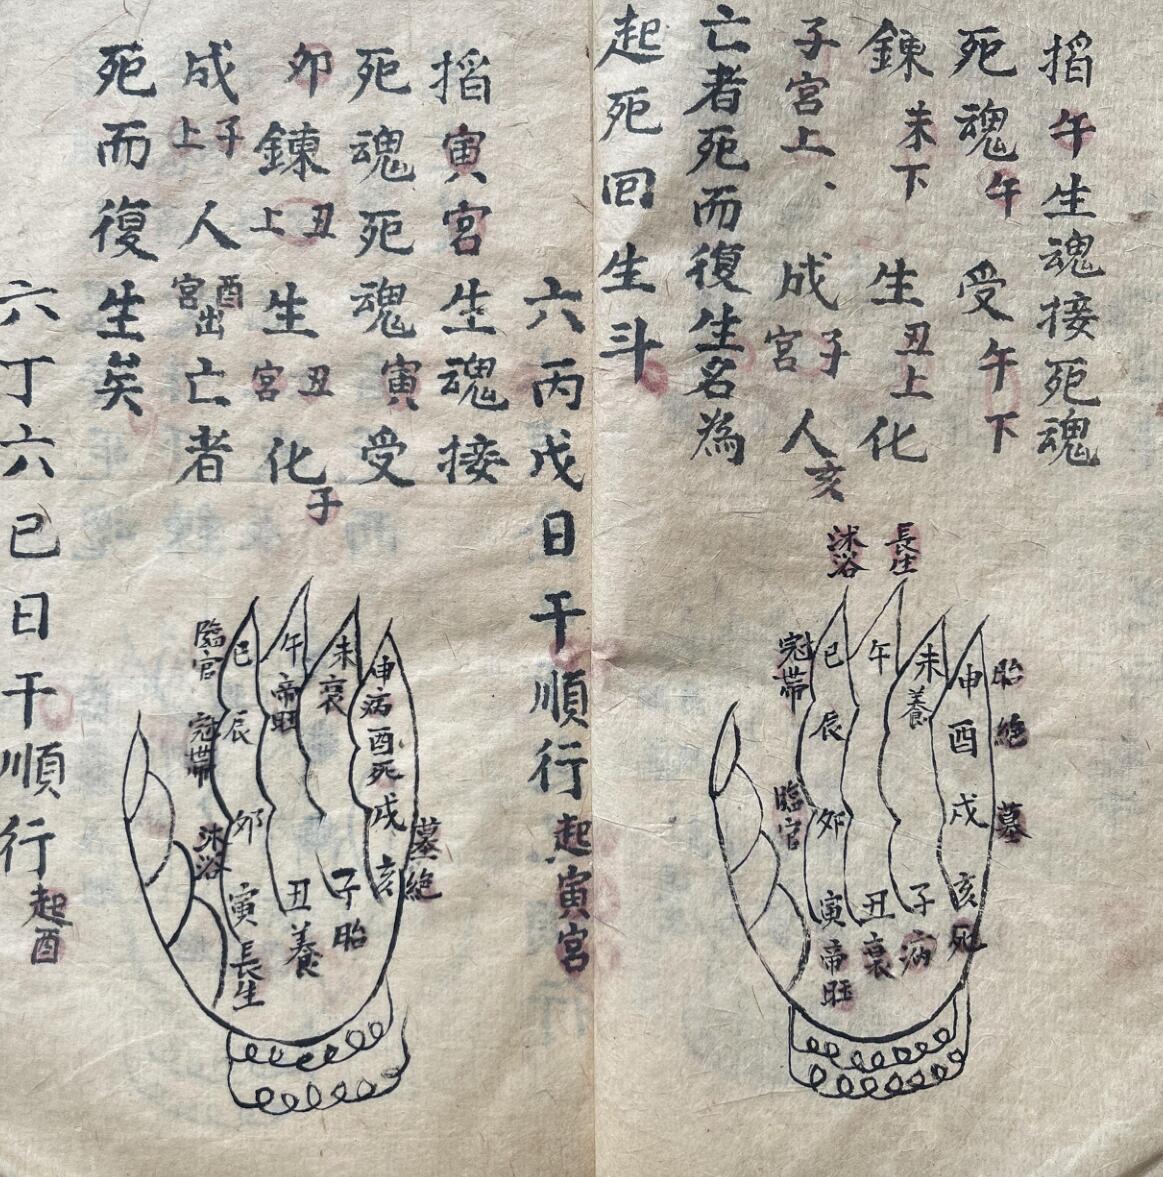 掐午生魂接死魂
死魂午受午下
鍊未下生丑上化
子宮上、成子宮人亥
亡者死而復生名為
起死回生斗
長生
沐浴
冠帶
巳
午
未
養
申
胎
辰
酉
絕
臨官
卯
戌
墓
寅
帝旺
丑
衰
子
病
亥
死
六丙戊日干順行起寅宮
掐寅宮生魂接
死魂死魂寅受
卯鍊丑上生丑宮化子
成子上人酉宮出亡者
死而復生矣
臨官
巳
午
帝旺
未
衰
申
病
冠帶
辰
酉
死
沐浴
卯
戌
墓
絕
亥
寅
長生
丑
養
子
胎
六丁六已日干順行起酉